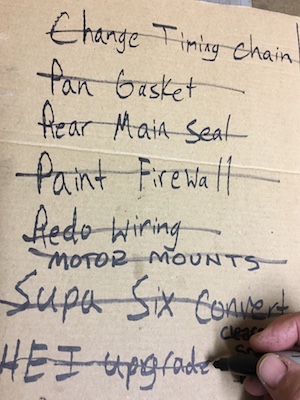 Change Timing Chain
Pan Gasket
Rear Main Seal
Paint Firewall
Redo Wiring
MOTOR MOUNTS
Supa Six Convert
HEI upgrade